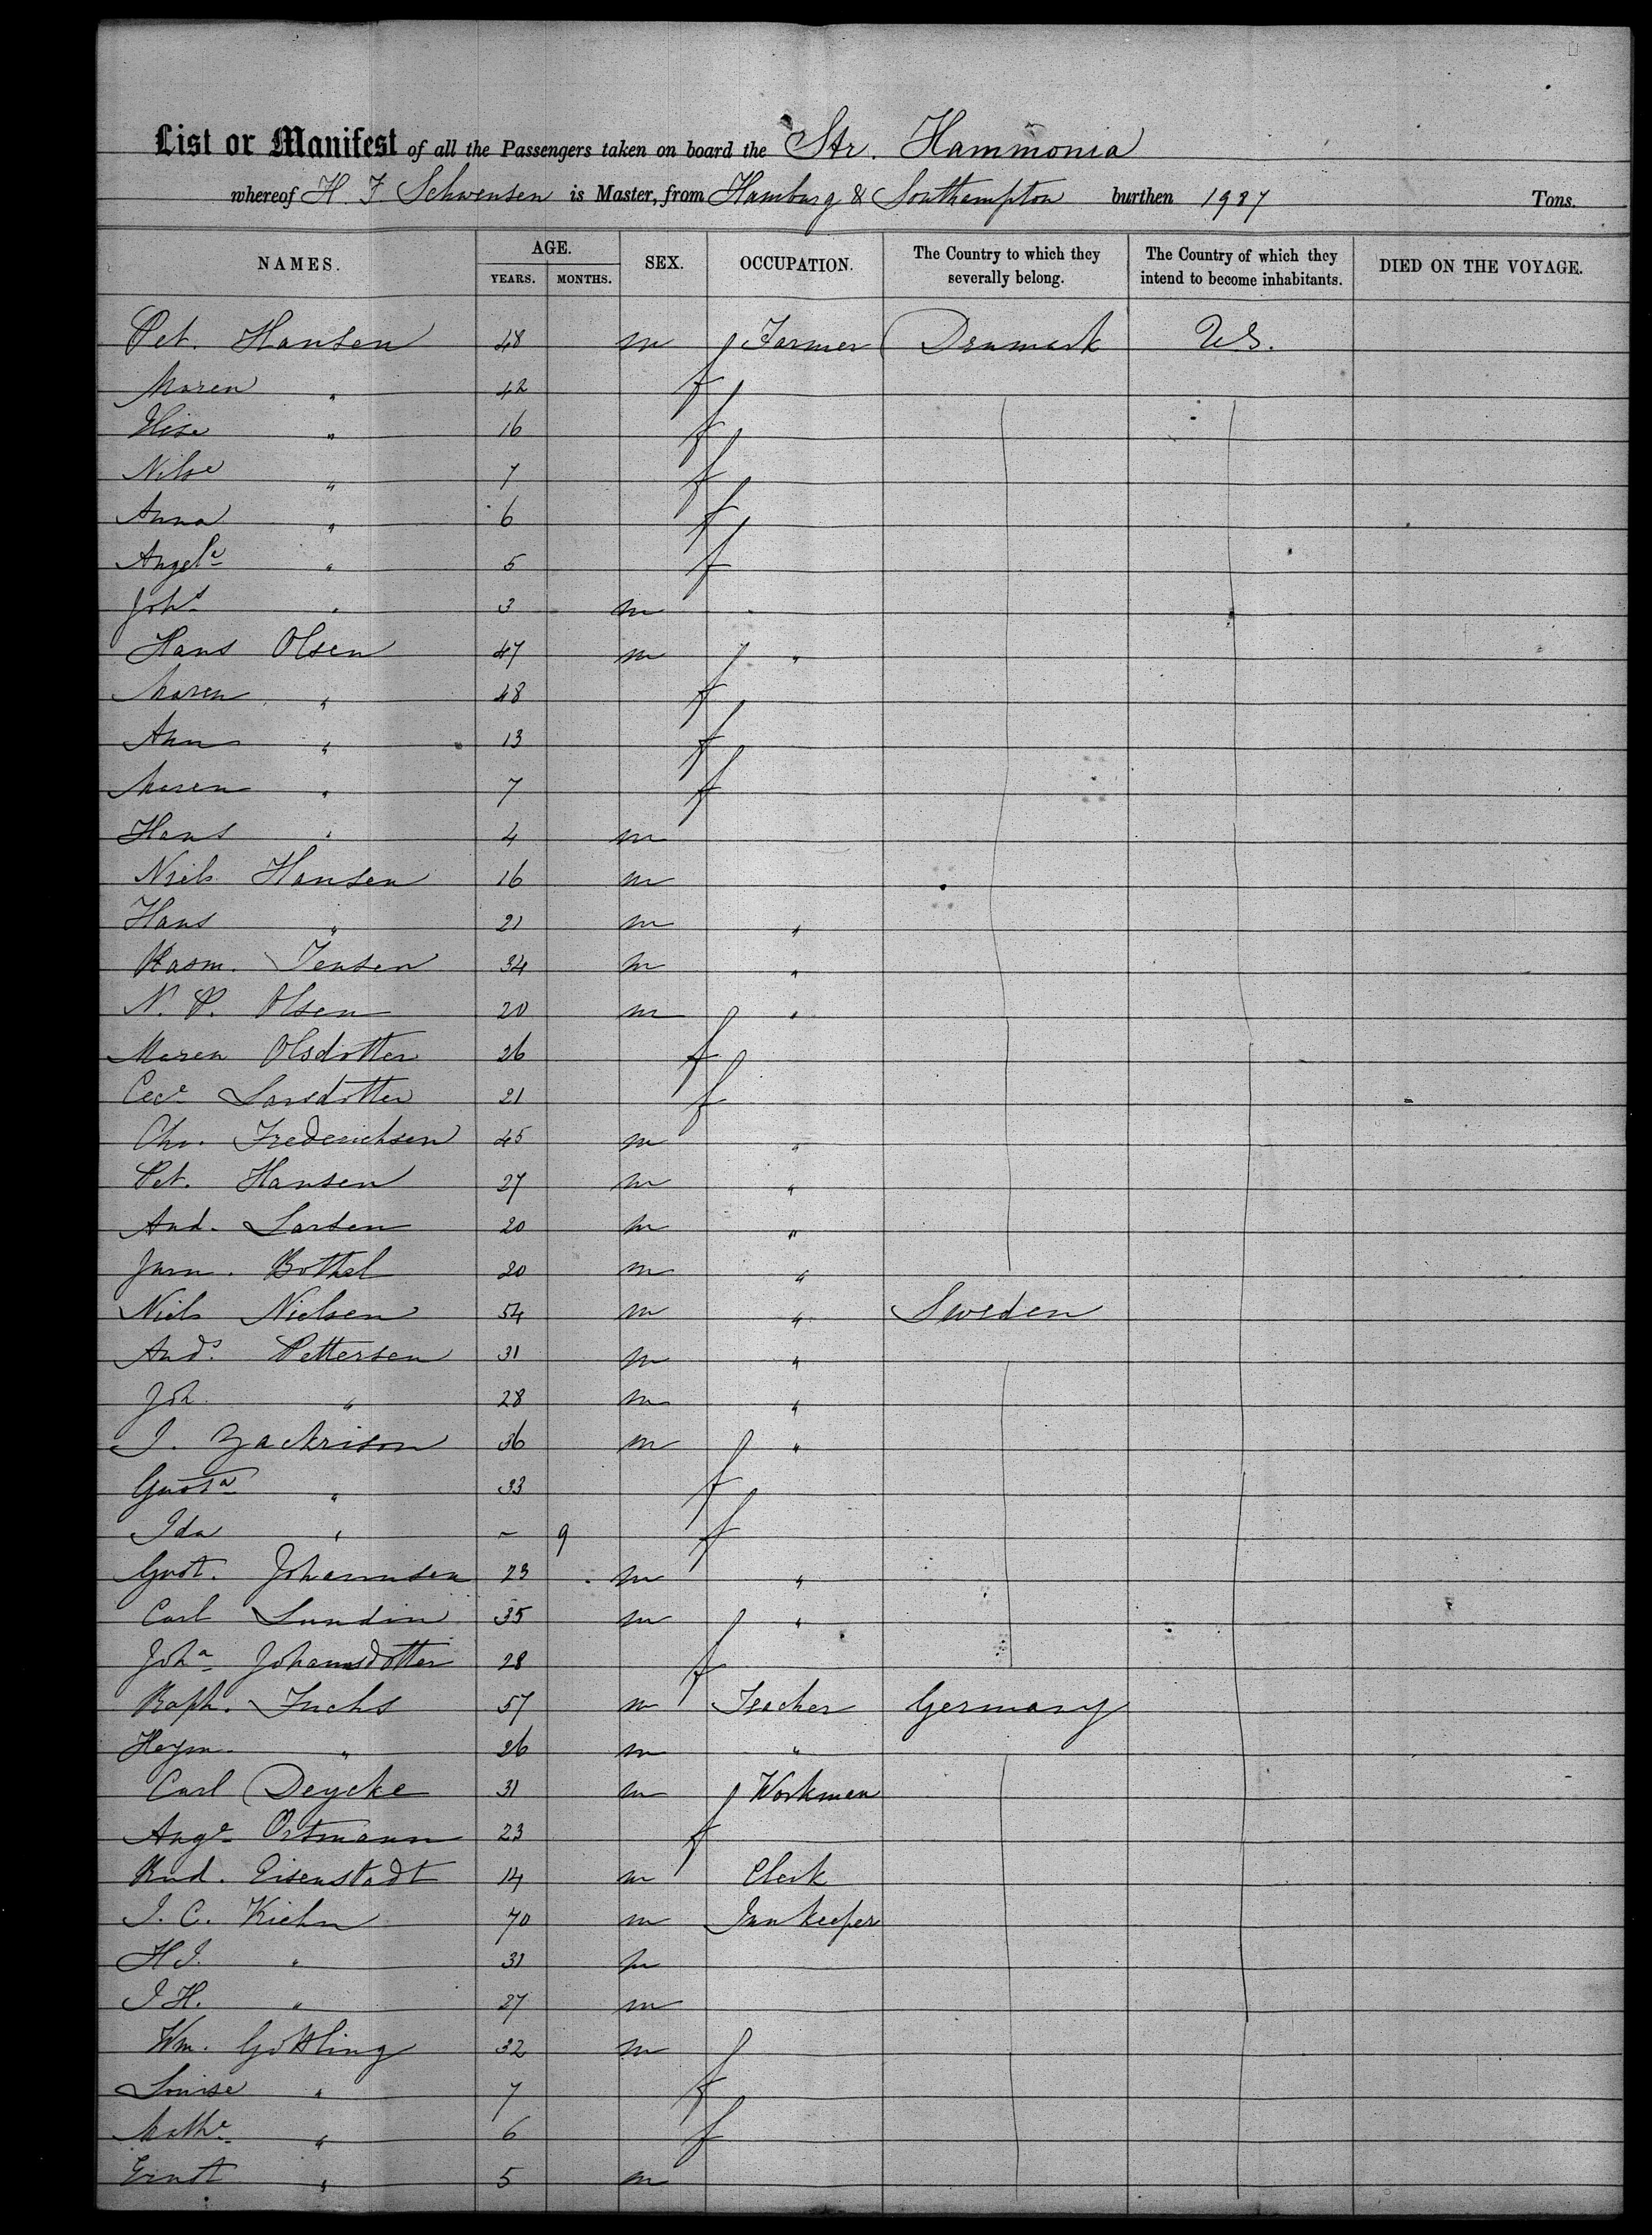 List or Manifest of all the Passengers taken on board the Str. Hammonia
whereof H. F. Schwensen is Master, from Hamburg & Southampton burthen 1987 Tons.
NAMES. AGE. YEARS. MONTHS. SEX. OCCUPATION. The Country to which they severally belong. The Country of which they intend to become inhabitants. DIED ON THE VOYAGE.
Pet. Hansen 48 m Farmer Denmark U.S.
Maren " 42 f
Elise " 16 f
Nilse " 7 f
Anna " 6 f
Angele " 5 f
Johs " 3 m
Hans Olsen 47 m "
Maren " 48 f
Ann " 13 f
Maren " 7 f
Hans " 4 m
Niels Hansen 16 m
Hans " 21 m "
Rasm. Jensen 34 m "
N. P. Olsen 20 m "
Maren Olsdotter 26 f
Cece Larsdotter 21 f
Chr. Frederichsen 45 m "
Pet. Hansen 27 m "
And. Larsen 20 m "
Jurn. Bothel 20 m "
Niels Nielsen 54 m " Sweden
Ands. Pettersen 31 m "
Joh. " 28 m "
J. Zackrison 36 m "
Gusta " 33 f
Ida " ~ 9 f
Gust. Johannsen 23 m "
Carl Lundin 35 m "
Joha Johannsdotter 28 f
Raph. Fuchs 57 m Teacher Germany
Heym. " 26 m "
Carl Deycke 31 m Workman
Auge Ortmann 23 f
Rud. Eisenstadt 14 m Clerk
J. C. Kiehn 70 m Innkeeper
H J. " 31 m
J H. " 27 m
Wm. Göttling 32 m
Louise " 7 f
Mathe " 6 f
Ernst " 5 m